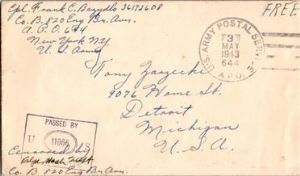 Cpl. Frank C. Bazydlo 36173608
Co. B. 820 Eng. Bn. Avn.
A.P.O. 644
New York N.Y.
U.S. Army
FREE
U.S. ARMY POSTAL SERVICE
23
MAY
1943
644
A.P.O.
Tony
9076 St.
Detroit
Michigan
U.S.A.
PASSED BY
U S
11066
Censored by
Co. B. 820 Eng Bn. Avn.